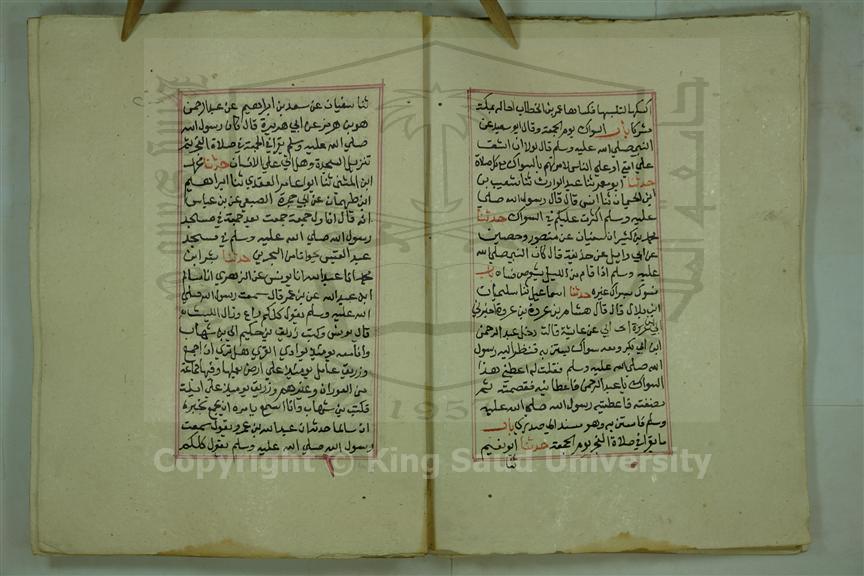 اكسكها لتلبسها فكساها عمر بن الخطاب اخا له بمكة
مشركا باب السواك يوم الجمعة وقال ابو سعيد عن
النبي صلى الله عليه وسلم قال لولا ان اشق
على امتي او على الناس لامرتهم بالسواك مع كل صلاة
حدثنا ابو معمر ثنا عبد الوارث ثنا شعيب بن
ابن الحبحاب ثنا انس قال قال رسول الله صلى
عليه وسلم اكثرت عليكم في السواك حدثنا
محمد بن كثير انا سفيان عن منصور وحصين
عن ابي وايل عن حذيفة قال كان النبي صلى الله
عليه وسلم اذا قام من الليل يشوص فاه باب
تسوك بسواك غيره حدثنا اسماعيل ثنا سليمان
ابن بلال قال قال هشام بن عروة بن عروة اخبرني
ابي عن عايشة قالت دخل عبد الرحمن
ابن ابي بكر ومعه سواك يستن به فنظر اليه رسول
الله صلى الله عليه وسلم فقلت له اعطني هذا
السواك يا عبد الرحمن فاعطانيه فقصمته ثم
مضغته فاعطيته رسول الله صلى الله عليه
وسلم فاستن به وهو مستند الى صدري باب
ما يقرا في صلاة الفجر يوم الجمعة حدثنا ابو نعيم
ثنا
ثنا سفيان عن سعد بن ابراهيم عن عبد الرحمن
هو بن هرمز عن ابي هريرة قال كان رسول الله
صلى الله عليه وسلم يقرا في الجمعة في صلاة الفجر الم
تنزيل السجدة وهل اتى على الانسان حدثنا محمد
ابن المثنى ثنا ابو عامر العقدي ثنا ابراهيم
ابن طهمان عن ابي جمرة الضبعي عن بن عباس
انه قال ان اول جمعة جمعت بعد جمعة في مسجد
رسول الله صلى الله عليه وسلم في مسجد
عبد القيس بجواثا من البحرين حدثنا بشر ابن
محمد انا عبد الله انا يونس عن الزهري انا سالم
ابن عبد الله عن بن عمر قال سمعت رسول الله صلى
الله عليه وسلم يقول كلكم راع وزاد الليث
قال يونس وكتب زريق بن حكيم الى بن شهاب
وانا معه يومئذ بوادي القرى هل ترى ان اجمع
وزريق عامل يومئذ على ارض يعملها وفيها جماعة
من السودان وغيرهم وزريق يومئذ على ايلة
فكتب بن شهاب وانا اسمع يامره ان يجمع يخبره
ان سالما حدثه ان عبد الله بن عمر يقول سمعت
رسول الله صلى الله عليه وسلم يقول كلكم
Copyright © King Saud University
جامعة الملك سعود
1957